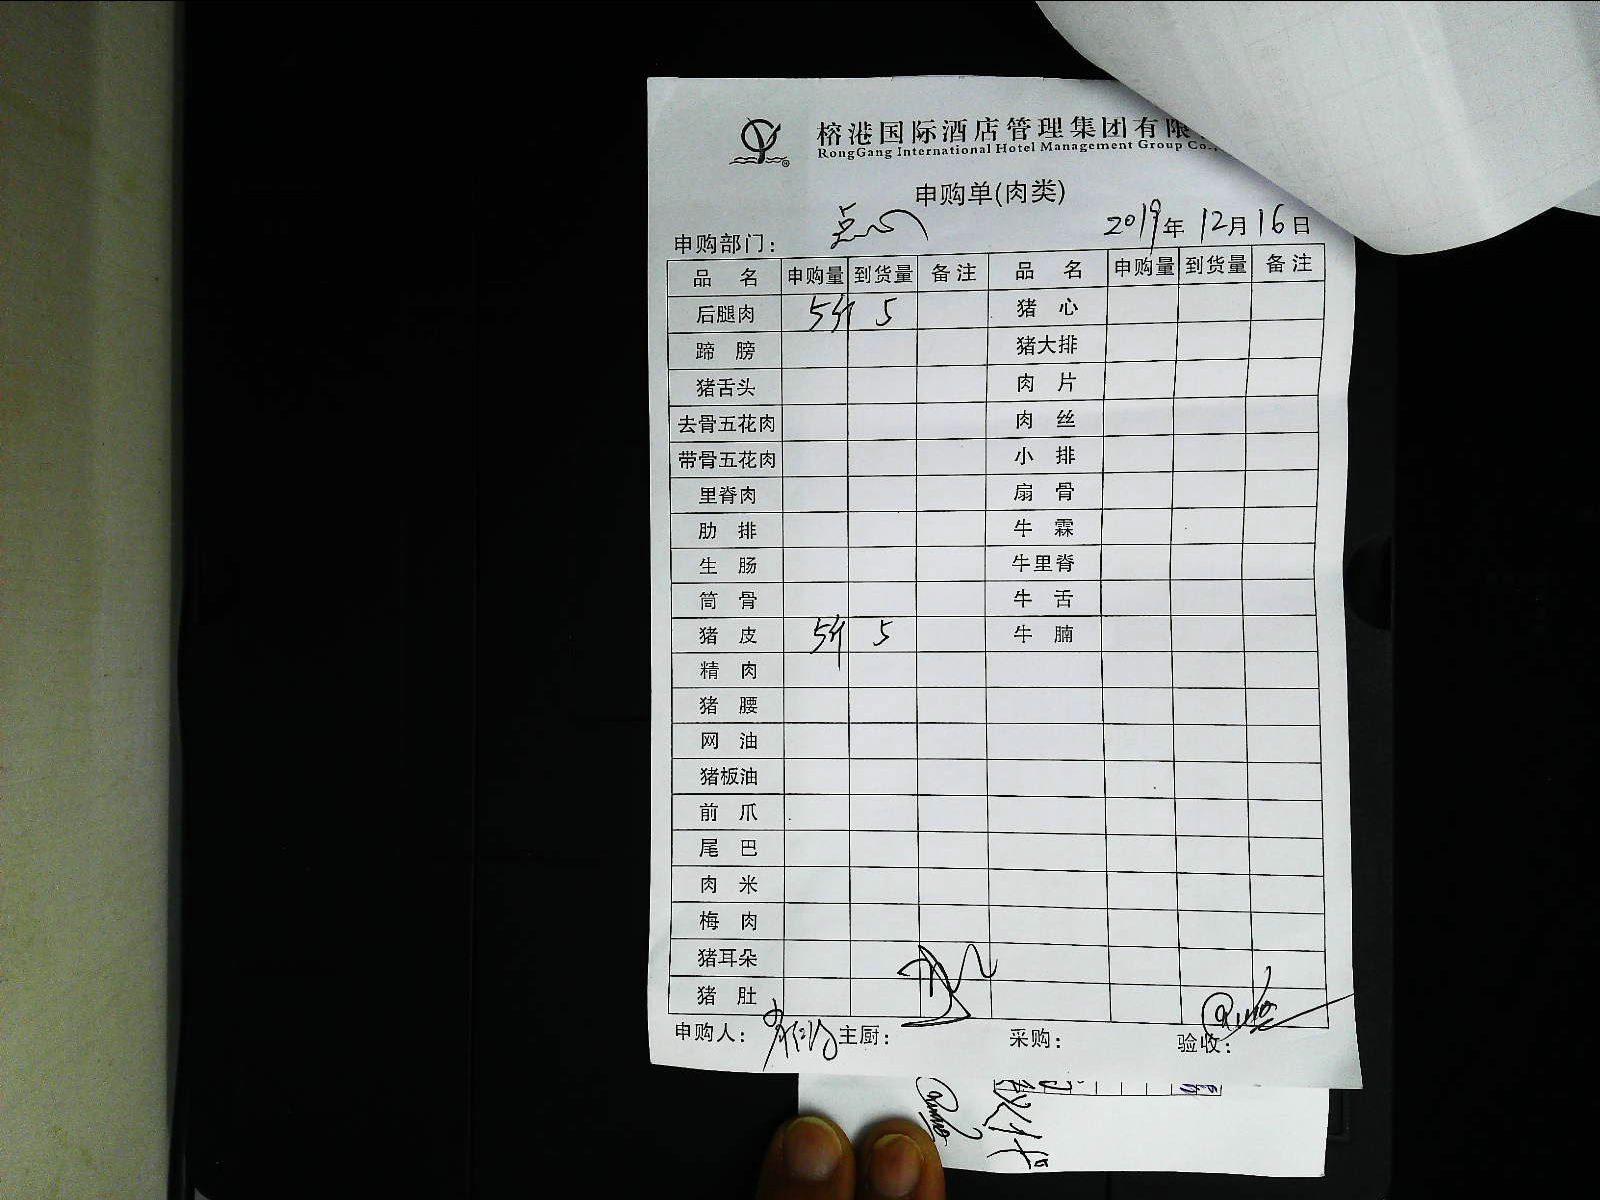 榕港国际酒店管理集团有限
RongGang International Hotel Management Group Co.,
申购单(肉类)
申购部门： 点心 2019年 12月 16日
品 名 申购量 到货量 备注 品 名 申购量 到货量 备注
后腿肉 5斤 5 猪 心
蹄 膀 猪大排
猪舌头 肉 片
去骨五花肉 肉 丝
带骨五花肉 小 排
里脊肉 扇 骨
肋 排 牛 霖
生 肠 牛里脊
筒 骨 牛 舌
猪 皮 5斤 5 牛 腩
精 肉
猪 腰
网 油
猪板油
前 爪
尾 巴
肉 米
梅 肉
猪耳朵
猪 肚
申购人： 主厨： 采购： 验收：